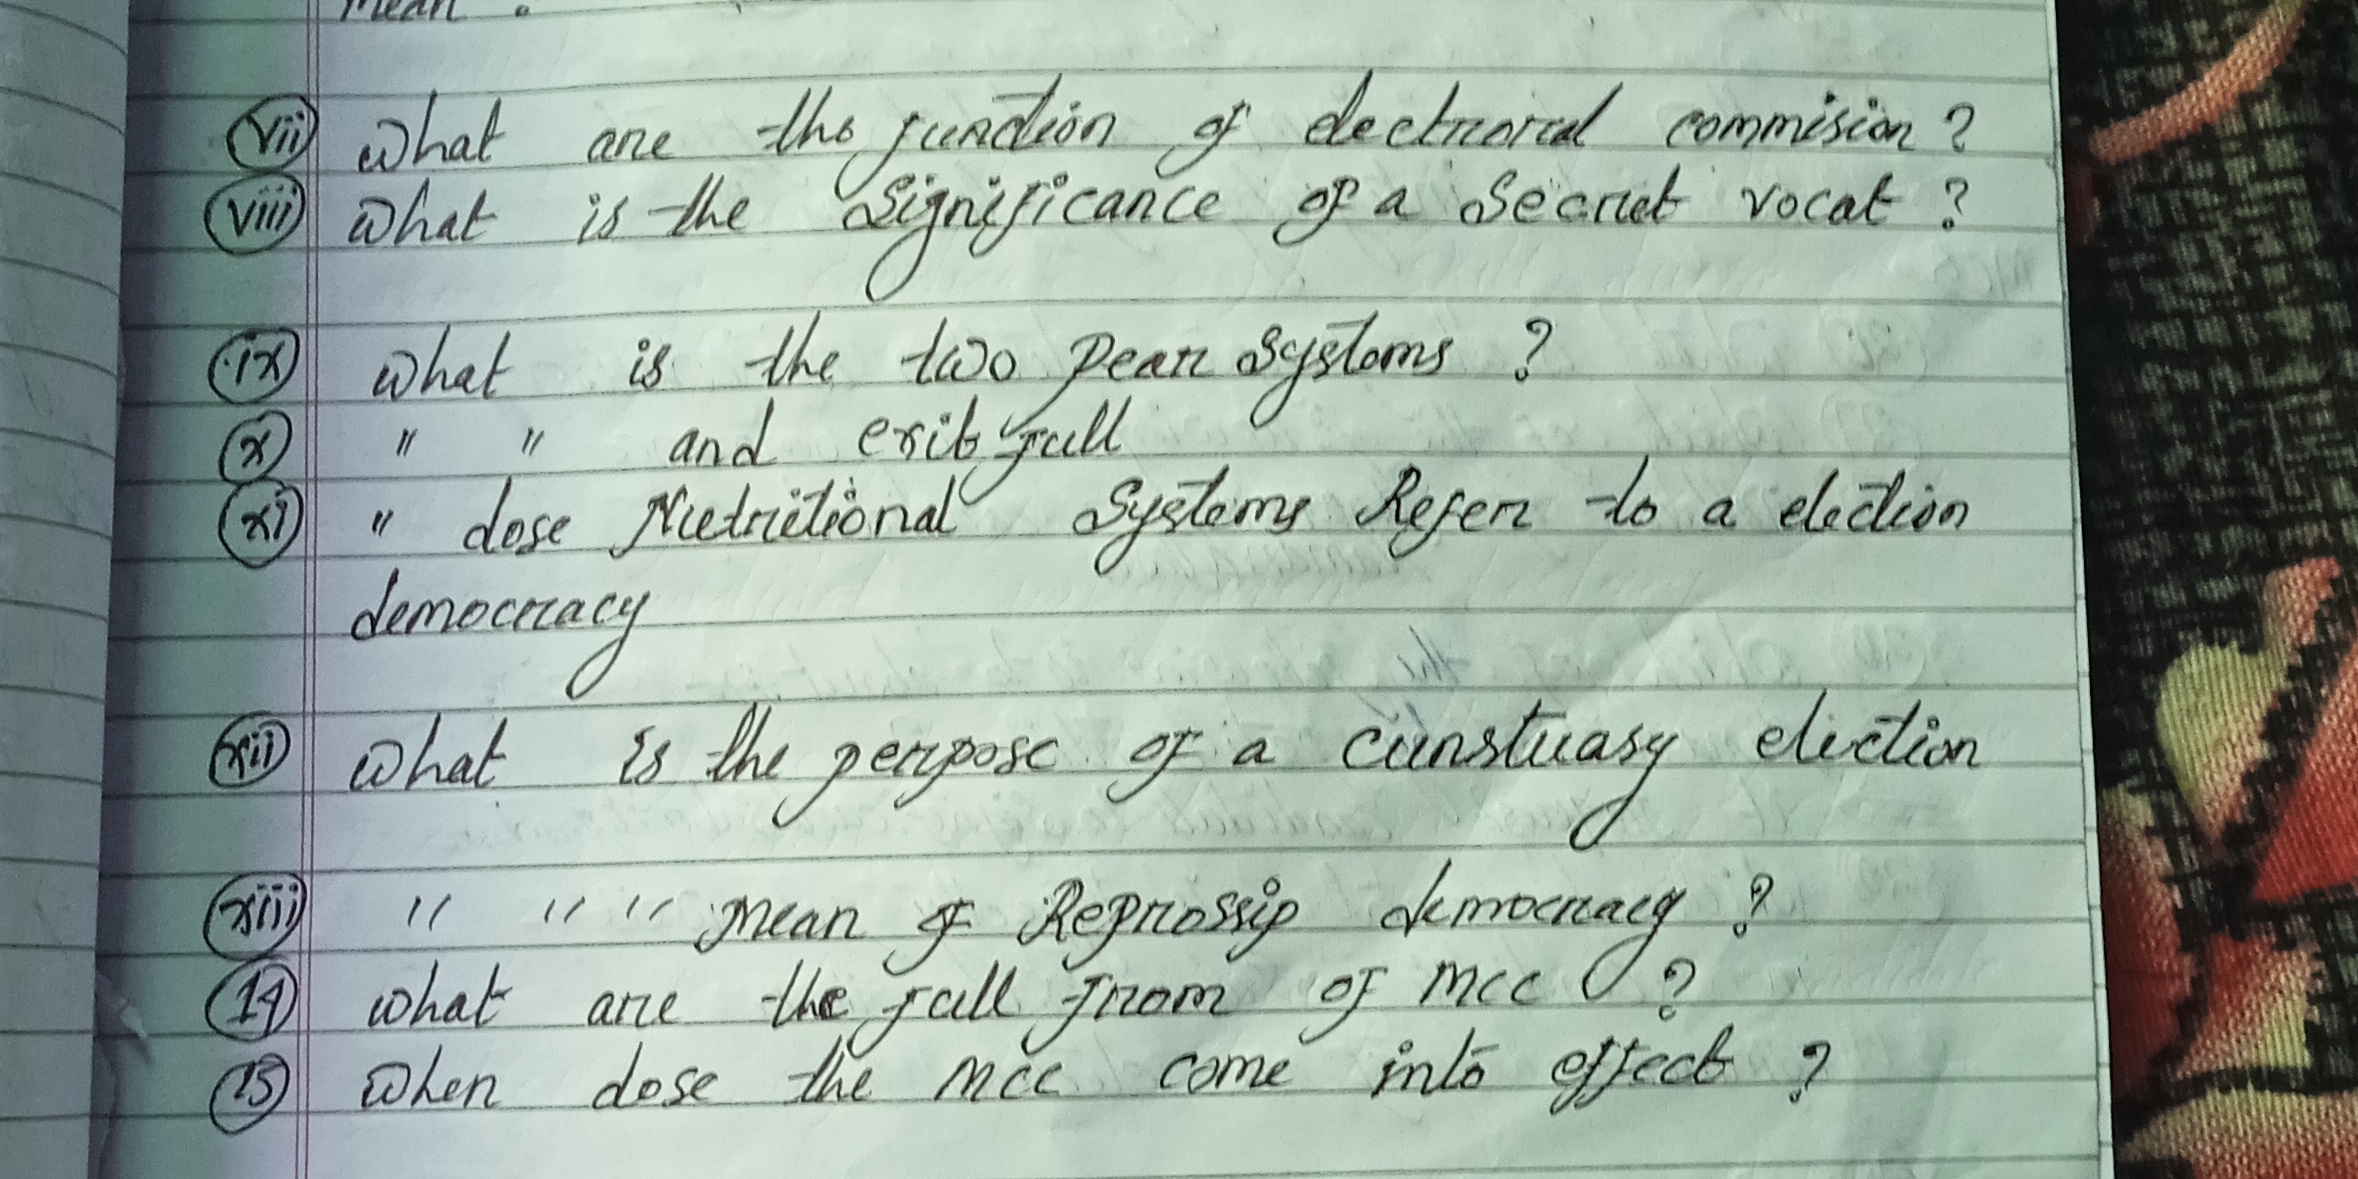 mean .
(vii) what are the function of electrorcal commision ?
(viii) what is the significance of a secret vocat ?
(ix) what is the two pear systoms ?
(x) " " and exit full
(xi) " dose Nutritional Systems Refer to a election
democracy
(xii) what is the perpose of a cunstuasy eliction
(xiii) " " " mean of Reprossip democracy ?
(14) what are the full from of mcc ?
(15) when dose the mcc come into effect ?